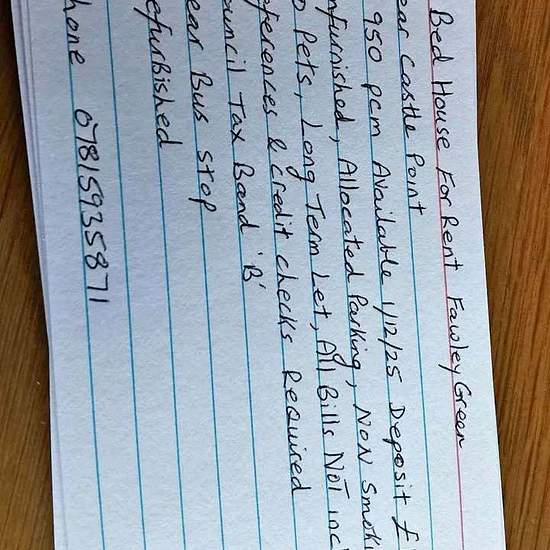 Bed House For Rent Fawley Green
ear Castle Point
950 pcm Available 1/12/25 Deposit £
nfurnished, Allocated Parking, Non Smoki
o Pets, Long Term Let, All Bills Not inc
eferences & credit checks Required
ouncil Tax Band 'B'
ear Bus Stop
efurbished
hone 07815935871